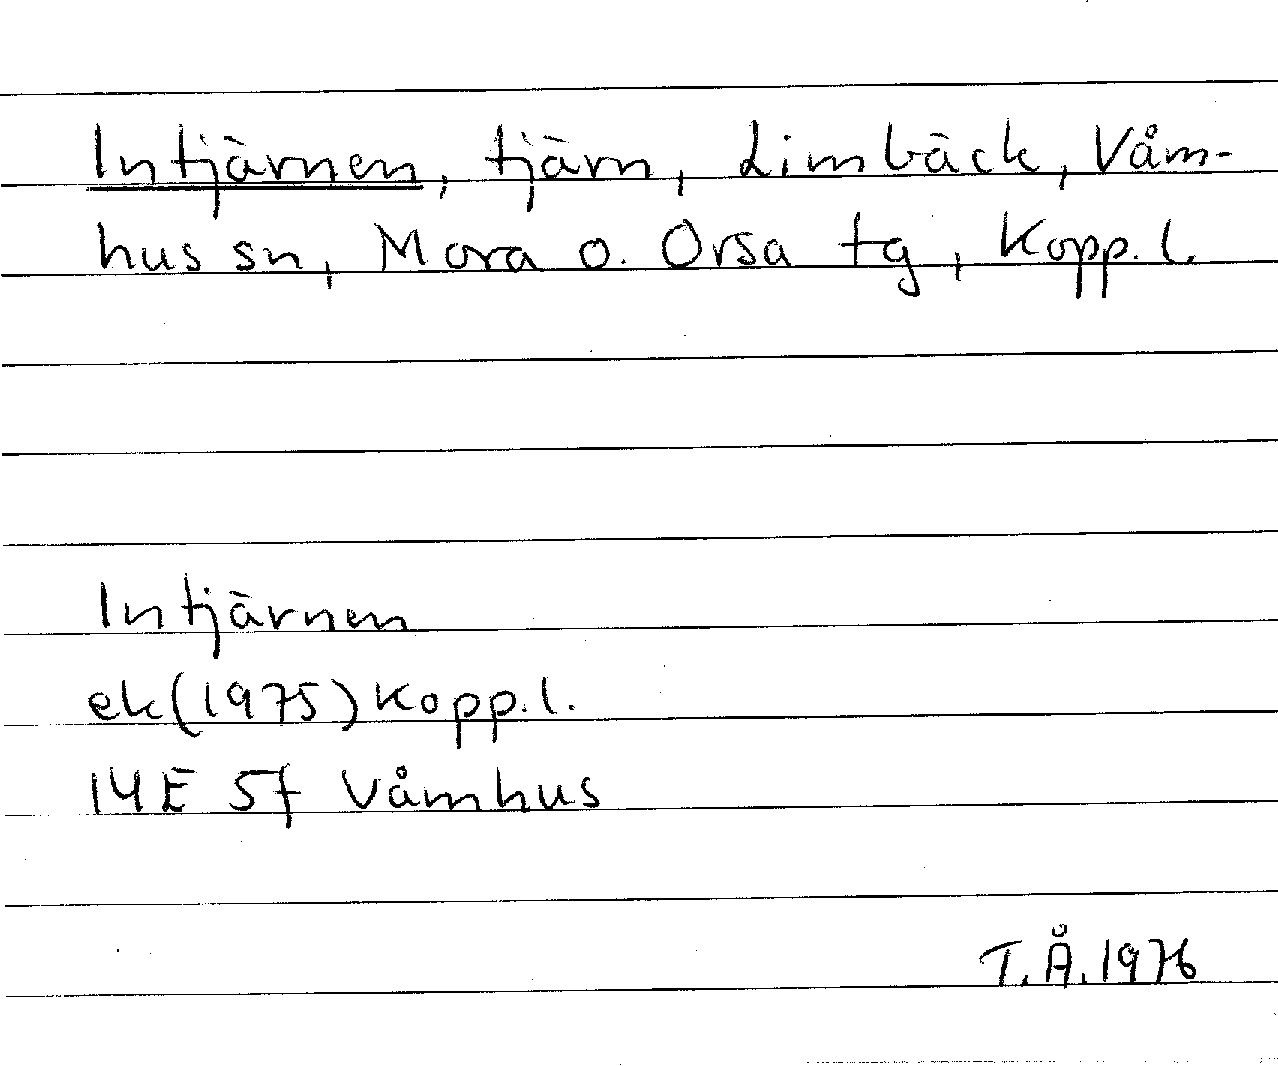 Intjärnen, tjärn, Limbäck, Våm-
hus sn, Mora o. Orsa tg, Kopp. l.
Intjärnen
ek (1975) Kopp. l.
14E 5f Våmhus
T.Å. 1976